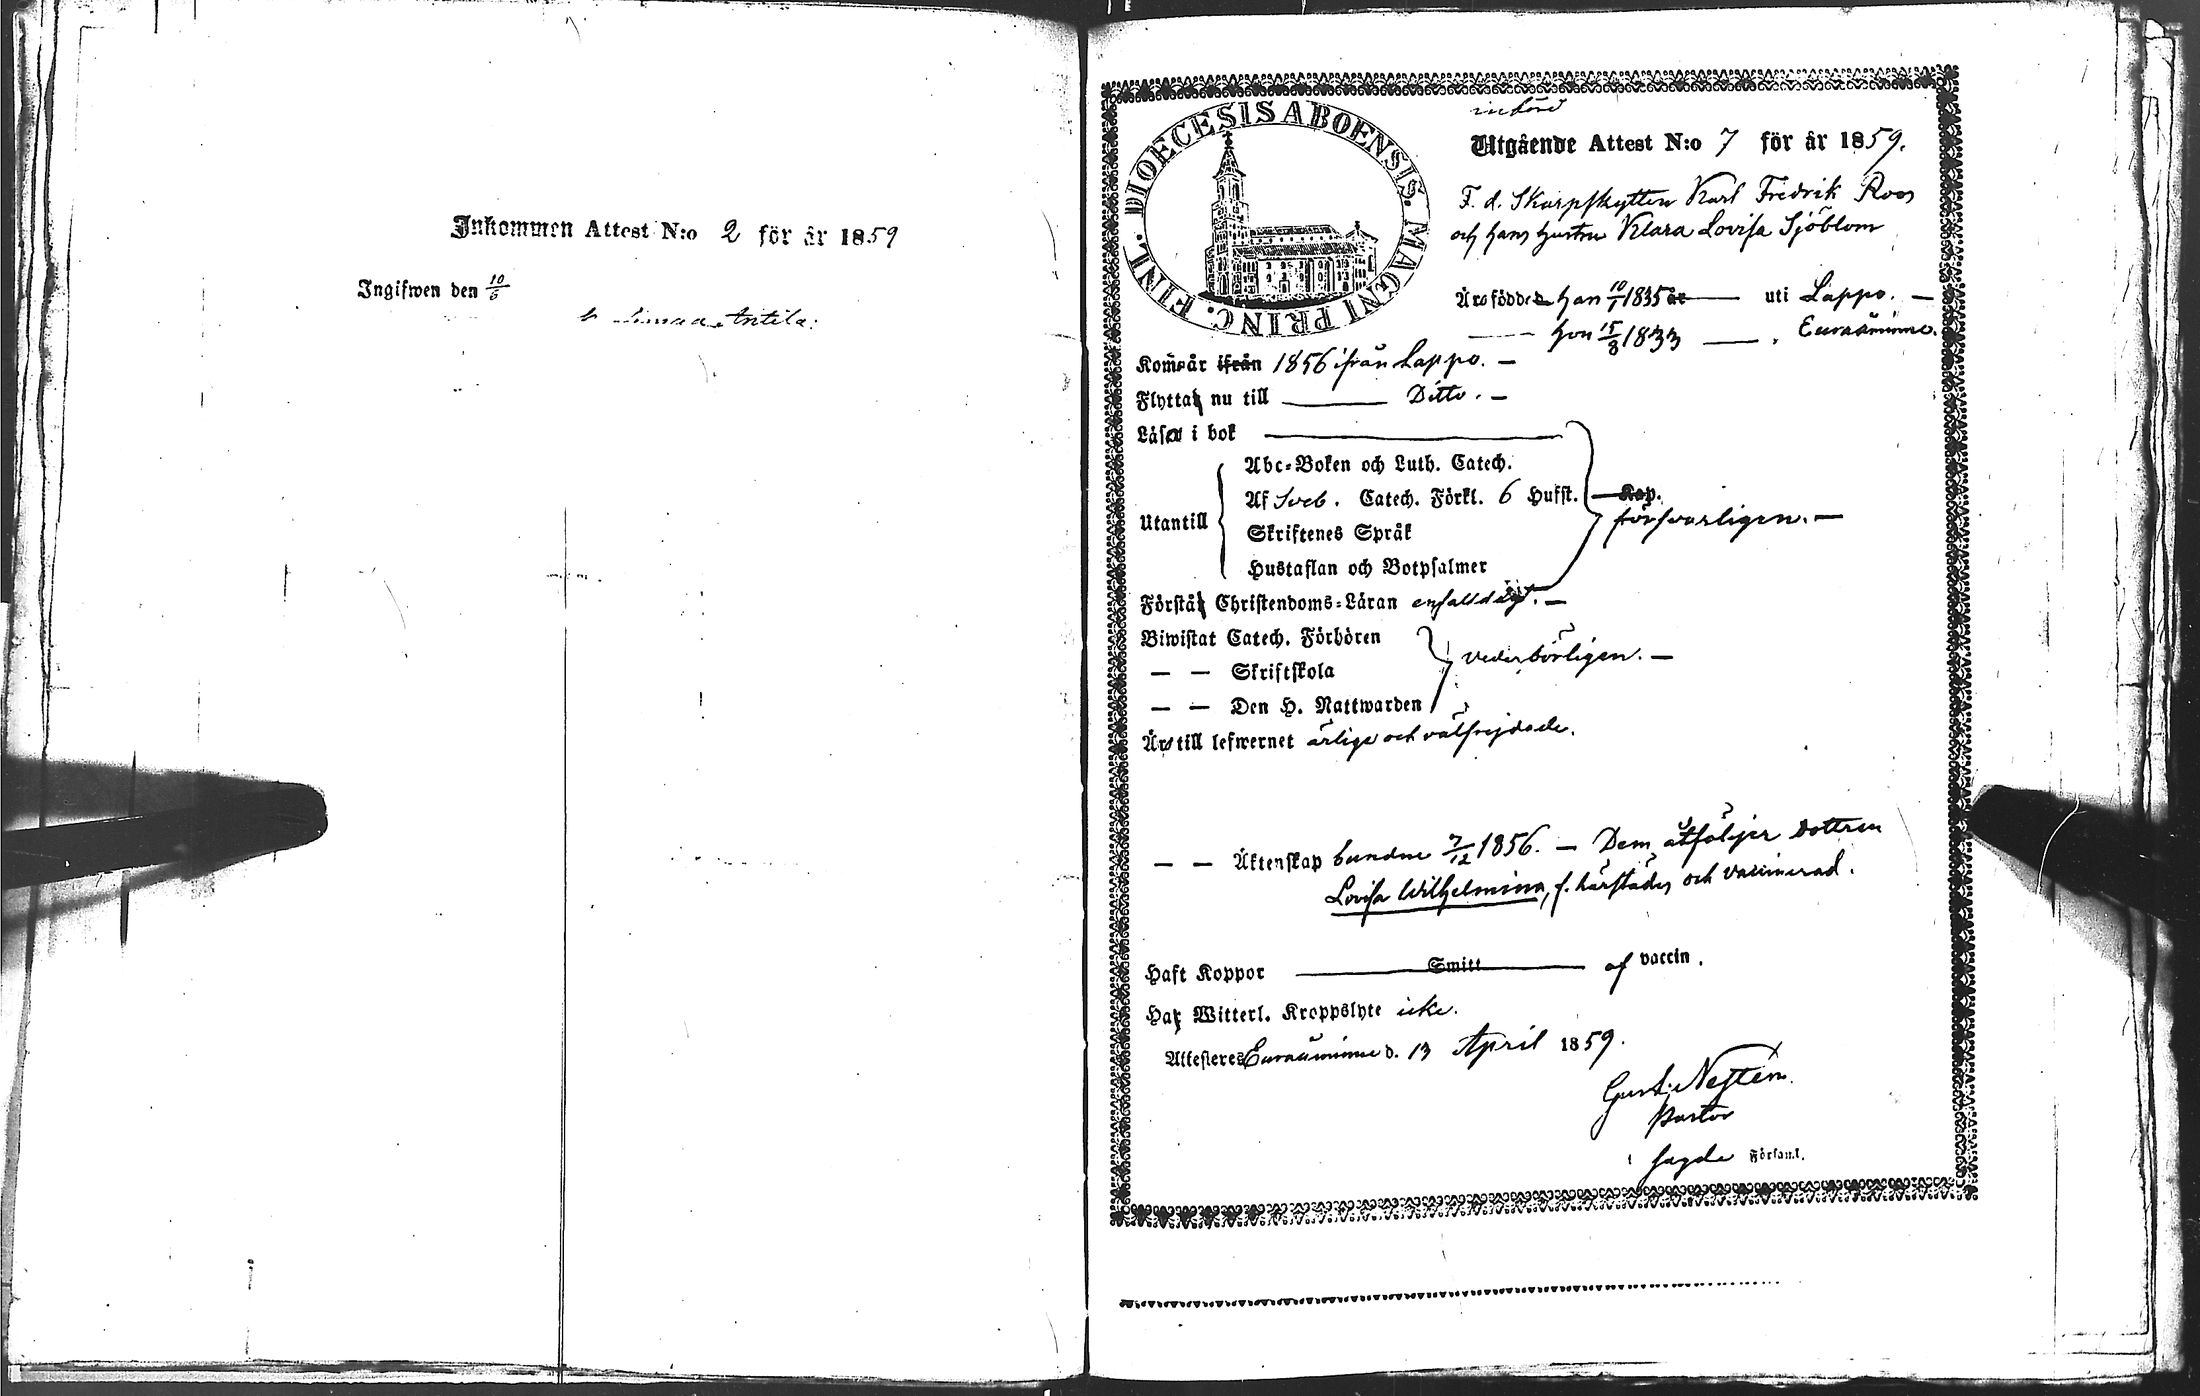 Inkommen Attest N:o 2 för år 1859
Ingifwen den 10/6
Antila.
DIOECESIS ABOENSIS. MAGNI PRINC. FINL.
Utgående Attest N:o 7 för år 1859.
F. d. Skarpskytten Karl Fredrik Roos
och hans hustru Klara Lovisa Sjöblom
Äro födde han 10/1 1835 år uti Lappo. —
hon 15/8 1833 — . Euraåminne.
Kom år ifrån 1856 ifrån Lappo. —
Flytta nu till — Ditto. —
Läsa i bok
Abc-Boken och Luth. Catech.
Af Sveb. Catech. Förkl. 6 Hufst. Kap.
Utantill
försvarligen. —
Skriftenes Språk
Hustaflan och Botpsalmer
Förstå Christendoms-Läran enfaldigt. —
Biwistat Catech. Förhören
vederbörligen. —
— — Skriftskola
— — Den H. Nattwarden
Äro till lefwernet ärlige och välfrejdade.
— — Äktenskap bundne 7/12 1856. — Dem åtföljer dottren
Lovisa Wilhelmina, f. härstädes och vaccinerad.
Haft Koppor Smitt af vaccin.
Ha Witterl. Kroppslyte icke.
Attesteres Euraåminne d. 13 April 1859.
Gust. Nestén.
Pastor
i sagde Församl.